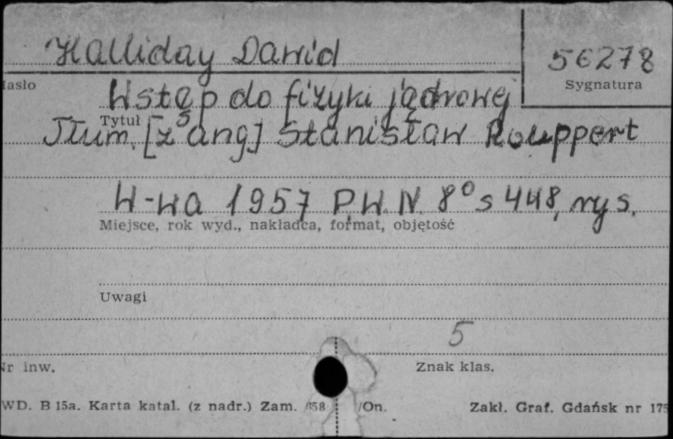 Halliday Dawid
56278
Hasło
Sygnatura
Wstęp do fizyki jądrowej
Tytuł
Tłum. [z ang] Stanisław Rouppert
W-wa 1957 P.W.N. 8° s 448, rys.
Miejsce, rok wyd., nakładca, format, objętość
Uwagi
5
Nr inw.
Znak klas.
WD. B 15a. Karta katal. (z nadr.) Zam. /On.
Zakł. Graf. Gdańsk nr 175